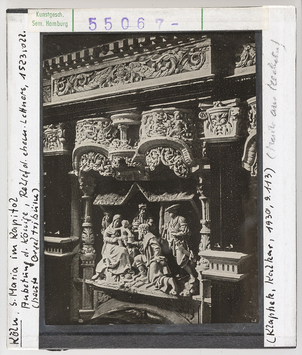 Kunstgesch.
Sem. Hamburg
55067
Köln: S. Maria im Kapitol
Anbetung d. Könige, Relief d. ehem. Lettners, 1523 voll.
(heute Orgeltribüne)
(Klapheck, Kalkar, 1930, S. 113)